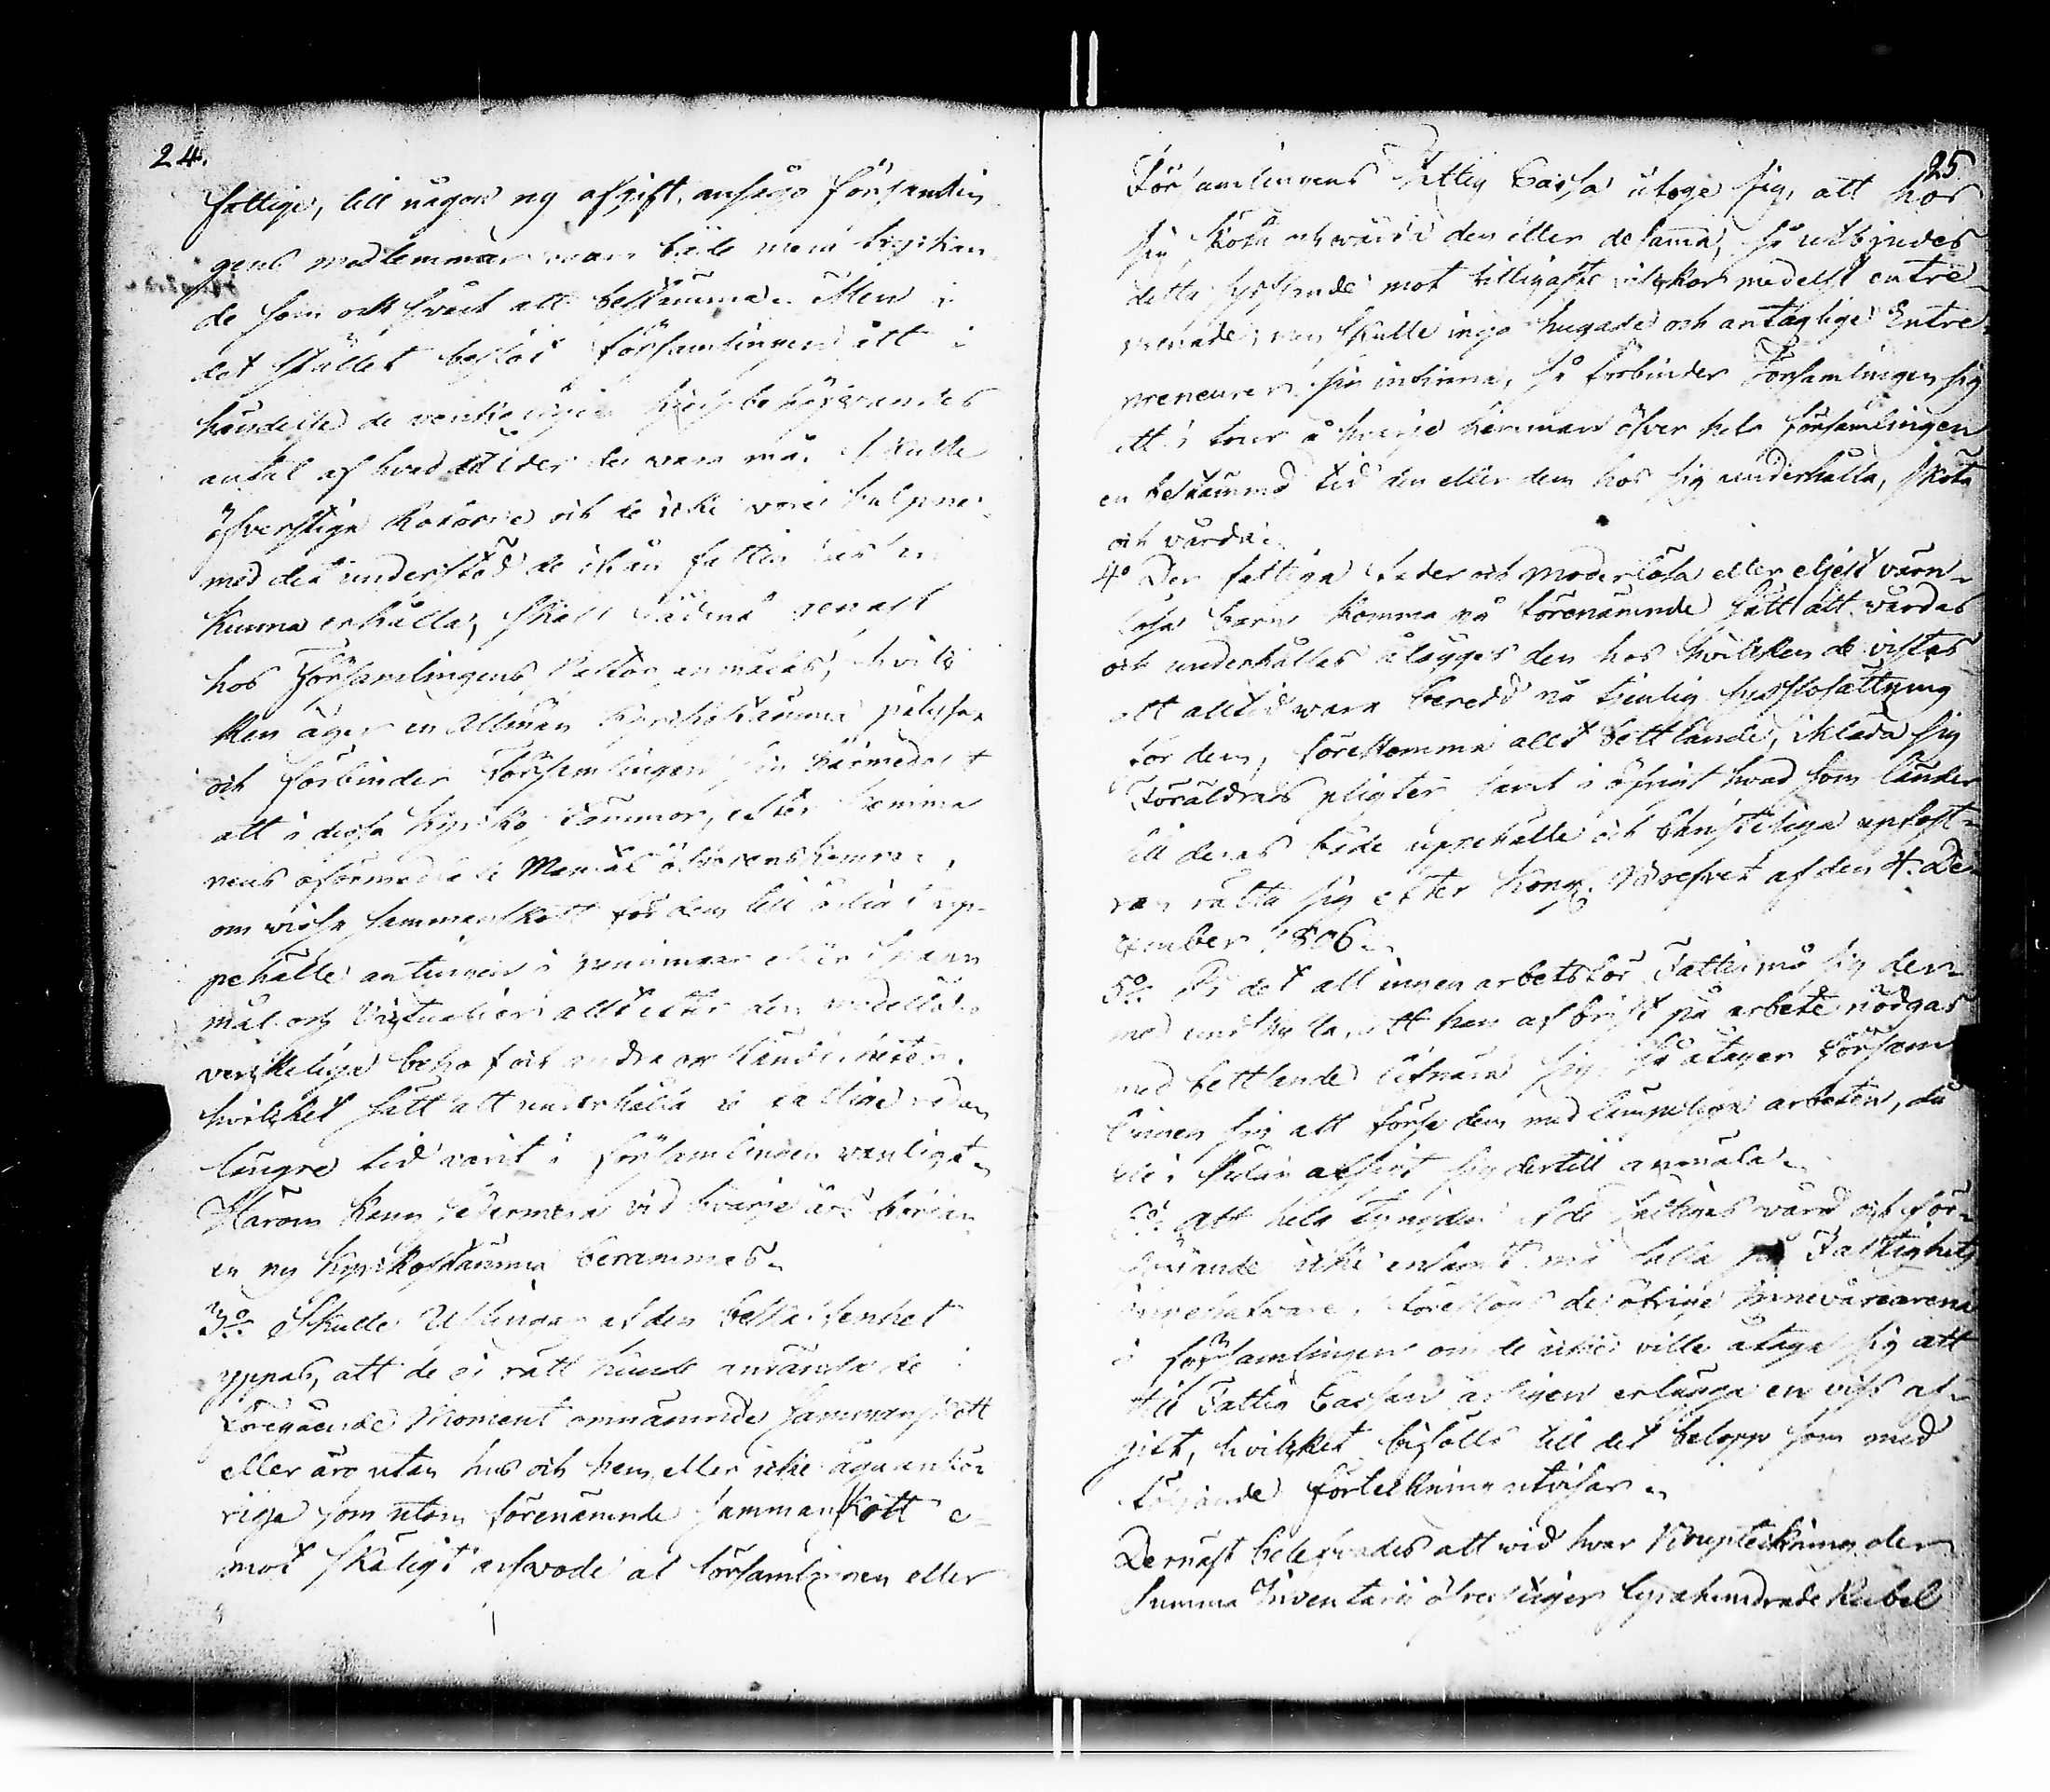 24.
fattige, till någon ny afgift, ansågo församlin
gens medlemmar vara både mera tryckan
de som ock svårt att bestämma. Men i
det stället beslöt församlingen att i
händelse de verkeligen behöfvandes
antal af hvad ålder de vara må, skulle
öfverstiga Rotorne och de icke vore hulpne
med det understöd de ifrån fattig
kunna erhålla, skall sådant genast
hos Församlingens Pastor anmälas, hvil
ken äger en Allmän Kyrkostämma pålysa
och förbinder Församlingen sig härmedelst
att i dessa Kyrko stämmor, efter hemma
nens oförmedlade Mantal öfverenskomma
om vissa sammanskott för dem till årligt up-
pehälle antingen i penningar eller Spann
mål och Victualier allt efter den medellöses
verkeliga behof och andra omständigheter.
hvilket sätt att underhålla de fattige redan
längre tid varit i församlingen vanligt.
Härom kan sedermera vid hvarje års början
en ny Kyrkostämma berammas.
3o Skulle Uslingar af den beskaffenhet
yppas, att de ej rätt kunde använda de i
föregående Moment omnämnde sammanskott
eller äro utan hus och hem, eller icke äga anhö
riga som utom förenämnde sammanskott e-
mot skäligt arfvode af församlingen eller
25
Församlingens Fattig Cassa åtoge sig, att hos
sig sköta och vårda den eller desamma, så utbjudes
detta mot billigaste vilkor medelst entre-
prenade; men skulle inga hugade och antaglige Entre-
preneurer sig infinna, så förbinder Församlingen sig
att i tour å hvarje hemman öfver hela församlingen
en bestämmd tid den eller dem hos sig underhålla, sköta
och vårda.
4o Der fattiga fader och moderlösa eller eljest värn-
lösa barn komma på förenämnde sätt att vårdas
och underhållas ålägges den hos hvilken de vistas
att alltid vara beredd på tjenlig sysslosättning
för dem, förekomma allt bettlande, ikläda sig
Föräldrars pligter samt i öfrigt hvad som länder
till deras både uppehälle och Christeliga upfost-
ran rätta sig efter Kongl. Brefvet af den 4. De-
cember 1806.
5o På det att ingen arbetsför Fattig må sig der-
med undskylla, att han af brist på arbete nödgas
med bettlande lifnära sig, så åtager Försam
lingen sig att förse dem med lämpeliga arbeten, då
de i sådan afsigt sig dertill anmäla.
6o Att hela tyngden af de fattigas vård och för-
sörjande icke ensamt må falla på Fastighets
innehafvare, föreslogs de öfrige Innevånarena
i församlingen om de icke ville åtaga sig att
till Fattig Cassan årligen erlägga en viss af-
gift, hvilket bifölls till det belopp som med
följande förteckning utvisar.
Dernäst belefvades att vid hvar Bouptekning der
Summa Inventarii öfverstiger tyrahundrade Rubel